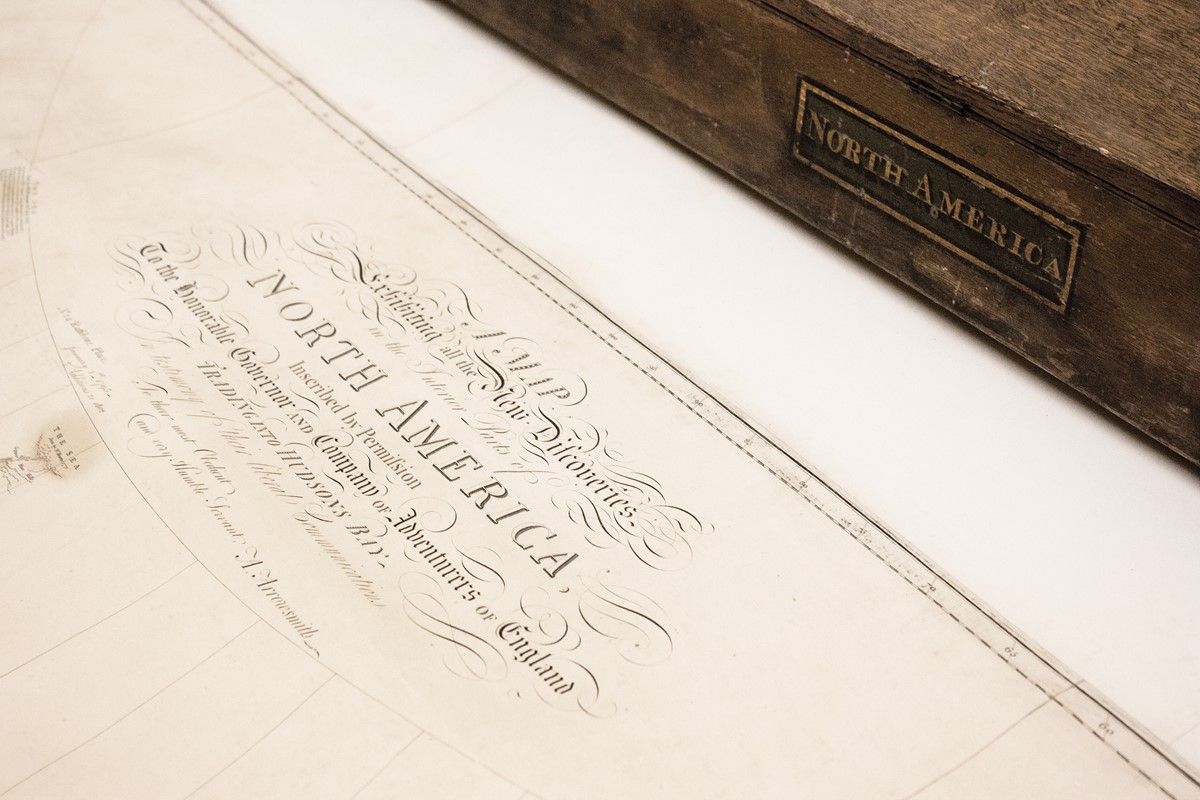 NORTH AMERICA
A MAP
Exhibiting all the New Discoveries
in the Interior Parts of
NORTH AMERICA,
Inscribed by Permiſsion
To the Honorable Governor AND Company OF Adventurers OF England
TRADING INTO HUDSONS BAY
In testimony of their liberal Communications
To their most Obedient
and very Humble Servant A. Arrowsmith
THE SEA
65
60